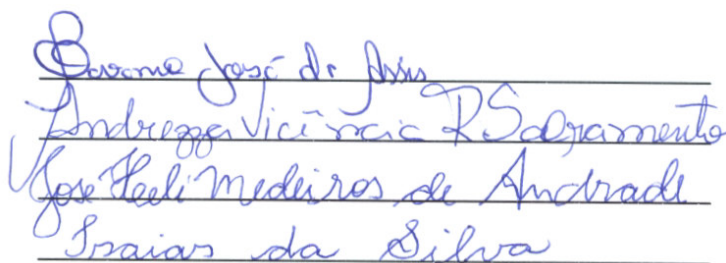 José de Assis
Andrezza Vicência R Sacramento
Jose Heeli Medeiros de Andrade
Isaias da Silva